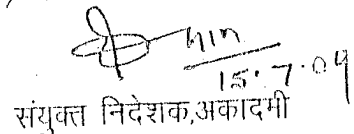 15.7.04
संयुक्त निदेशक,अकादमी